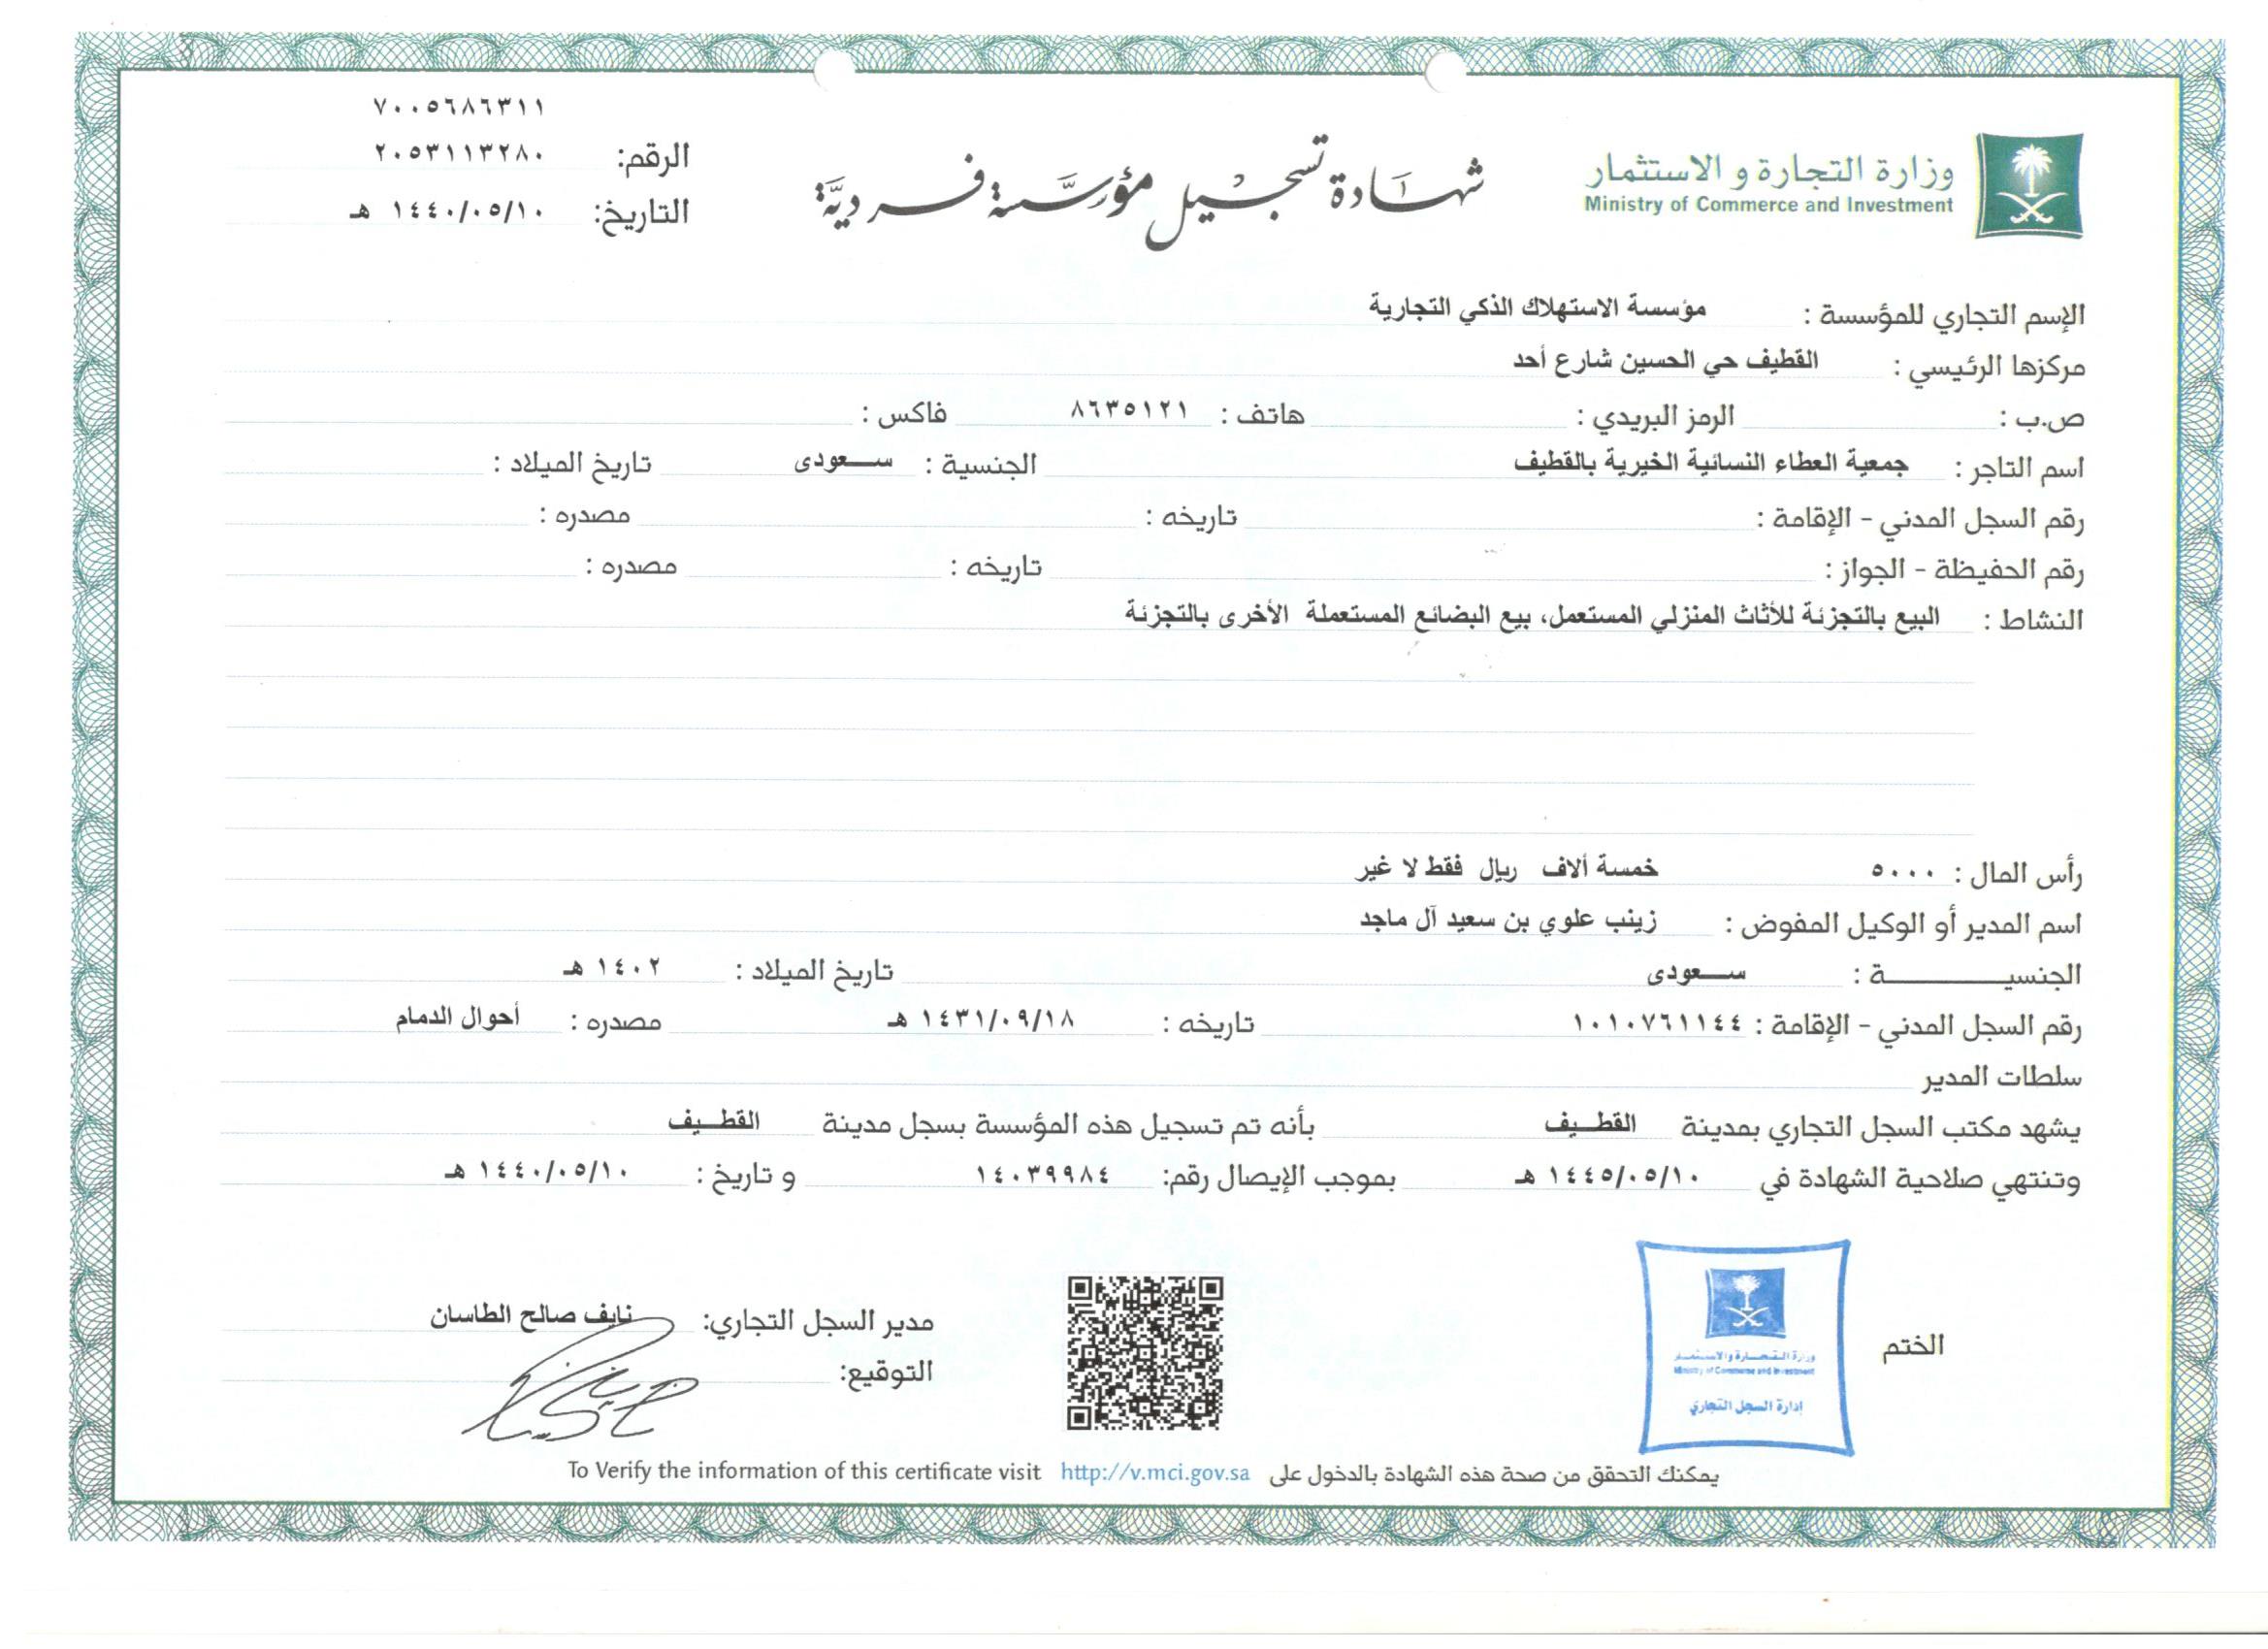 وزارة التجارة و الاستثمار
Ministry of Commerce and Investment
شهادة تسجيل مؤسسة فردية
٧٠٠٥٦٨٦٣١١
الرقم: ٢٠٥٣١١٣٢٨٠
التاريخ: ١٤٤٠/٠٥/١٠ هـ
الإسم التجاري للمؤسسة : مؤسسة الاستهلاك الذكي التجارية
مركزها الرئيسي : القطيف حي الحسين شارع أحد
ص.ب : الرمز البريدي : هاتف : ٨٦٣٥١٢١ فاكس :
اسم التاجر : جمعية العطاء النسائية الخيرية بالقطيف الجنسية : سعودى تاريخ الميلاد :
رقم السجل المدني - الإقامة : تاريخه : مصدره :
رقم الحفيظة - الجواز : تاريخه : مصدره :
النشاط : البيع بالتجزئة للأثاث المنزلي المستعمل، بيع البضائع المستعملة الأخرى بالتجزئة
رأس المال : ٥٠٠٠ خمسة ألاف ريال فقط لا غير
اسم المدير أو الوكيل المفوض : زينب علوي بن سعيد آل ماجد
الجنسيــــــــة : سعودى تاريخ الميلاد : ١٤٠٢ هـ
رقم السجل المدني - الإقامة : ١٠١٠٧٦١١٤٤ تاريخه : ١٤٣١/٠٩/١٨ هـ مصدره : أحوال الدمام
سلطات المدير
يشهد مكتب السجل التجاري بمدينة القطيف بأنه تم تسجيل هذه المؤسسة بسجل مدينة القطيف
وتنتهي صلاحية الشهادة في ١٤٤٥/٠٥/١٠ هـ بموجب الإيصال رقم: ١٤٠٣٩٩٨٤ و تاريخ : ١٤٤٠/٠٥/١٠ هـ
الختم
وزارة التجارة والاستثمار
Ministry of Commerce and Investment
إدارة السجل التجاري
مدير السجل التجاري: نايف صالح الطاسان
التوقيع:
يمكنك التحقق من صحة هذه الشهادة بالدخول على http://v.mci.gov.sa To Verify the information of this certificate visit